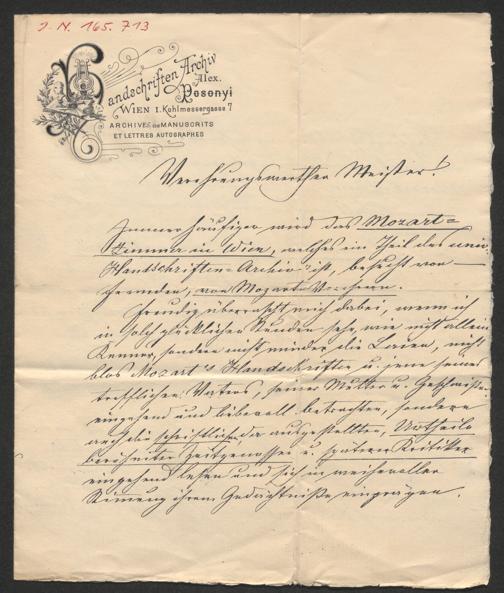 J. N. 165.713
Handschriften Archiv
Alex.
Posonyi
WIEN I. Kohlmessergasse 7
ARCHIVES DE MANUSCRITS
ET LETTRES AUTOGRAPHES
Verehrungswerther Meister!
Immer häufiger wird das Mozart-
Zimmer in Wien, welches ein Theil des
Handschriften-Archiv ist, besucht von
Fremden, von Mozart-Verehrern.
Freudig überrascht mich dabei, wenn ich
in solch glücklichen Stunden sehe, wie nicht allein
Kenner, sondern nicht minder die Laien, nicht
blos Mozart's Handschriften u. jene seines
trefflichen Vaters, seiner Mutter u. Geschwister
eingehend und liebevoll betrachten, sondern
auch die schriftlichen da ausgestellten, Urtheile
berühmter Zeitgenossen u. späterer Kritiker
eingehend lesen und sich in weihevoller
Stimmung ihrem Gedächtniße einprägen.